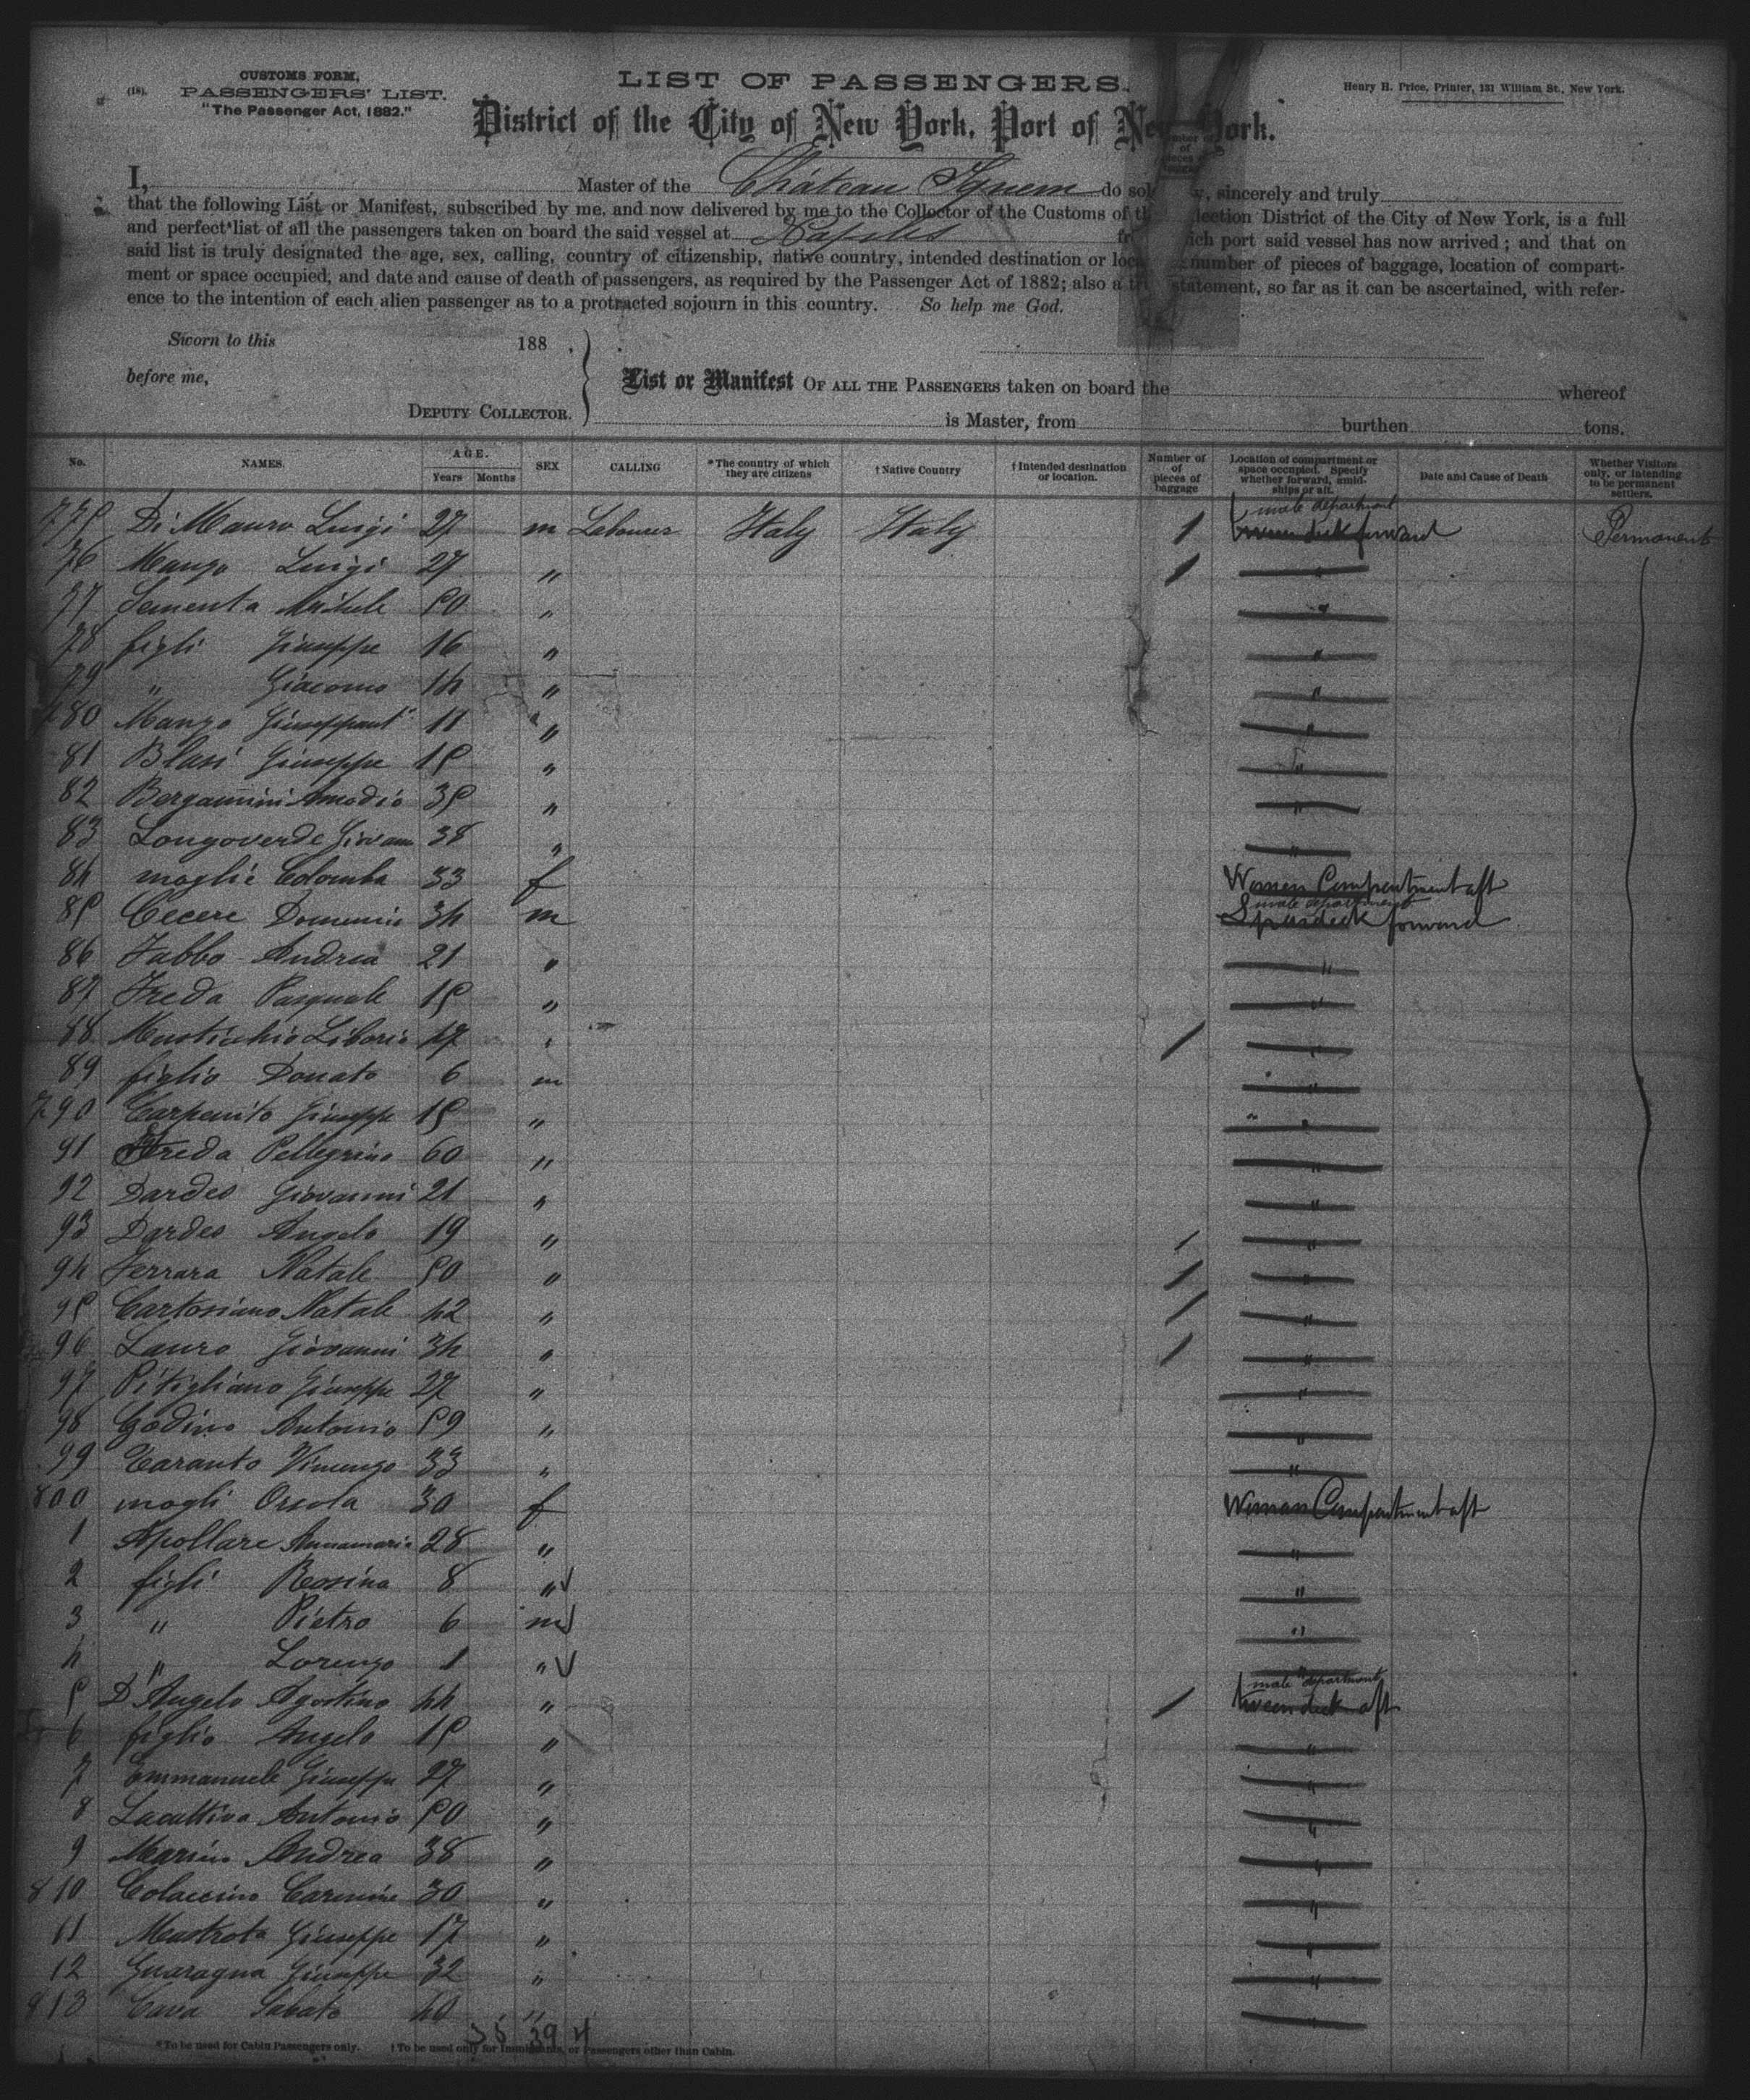 (18).
CUSTOMS FORM,
PASSENGERS' LIST.
"The Passenger Act, 1882."
LIST OF PASSENGERS.
Henry H. Price, Printer, 131 William St., New York.
District of the City of New York, Port of New York.
I, Master of the Château Yquem do sol sincerely and truly
that the following List or Manifest, subscribed by me, and now delivered by me to the Collector of the Customs of th lection District of the City of New York, is a full
and perfect list of all the passengers taken on board the said vessel at Naples fr ich port said vessel has now arrived; and that on
said list is truly designated the age, sex, calling, country of citizenship, native country, intended destination or loca number of pieces of baggage, location of compart-
ment or space occupied, and date and cause of death of passengers, as required by the Passenger Act of 1882; also a tr statement, so far as it can be ascertained, with refer-
ence to the intention of each alien passenger as to a protracted sojourn in this country. So help me God.
Sworn to this 188 .
before me,
DEPUTY COLLECTOR.
List or Manifest OF ALL THE PASSENGERS taken on board the whereof
is Master, from burthen tons.
No. NAMES. AGE. Years Months SEX CALLING *The country of which they are citizens †Native Country †Intended destination or location. Number of of pieces of baggage Location of compartment or space occupied. Specify whether forward, amid- ships or aft. Date and Cause of Death Whether Visitors only, or intending to be permanent settlers.
male department
775 Di Mauro Luigi 27 m Labourer Italy Italy 1 tweendeck forward Permanent
76 Mango Luigi 27 " 1 "
77 Sementa Michele 50 " "
78 figli Giuseppe 16 " "
79 " Giacomo 14 " "
780 Mango 11 " "
81 Blasi Giuseppe 15 " "
82 Bergamini Amodio 35 " "
83 Longoverde Giovann 38 " "
84 moglie Colomba 33 f Women Compartment aft
male department
85 Cecere Domenico 34 m Spardeck forward
86 Fabbo Andrea 21 " "
87 Freda Pasquale 15 " "
88 Liborio 47 " 1 "
89 figlio Donato 6 m "
790 Carpenito Giuseppe 15 " "
91 Freda Pellegrino 60 " "
92 Dardes Giovanni 21 " "
93 Dardes Angelo 19 " 1 "
94 Ferrara Natale 50 " 1 "
95 Cartosiano Natale 42 " 1 "
96 Lauro Giovanni 34 " 1 "
97 Pitigliano Giuseppe 27 " "
98 Godino Antonio 59 " "
99 Taranto Vincenzo 33 " "
800 mogli Orsola 30 f Women Compartment aft
1 Apollare Annamaria 28 " "
2 figli Rosina 8 " "
3 " Pietro 6 m "
4 " Lorenzo 1 " "
male department
5 D'Angelo Agostino 44 " 1 tweendeck aft
6 figlio Angelo 15 " "
7 Emmanuele Giuseppe 27 " "
8 Antonio 50 " "
9 Marino Andrea 38 " "
810 Colaccino Carmine 30 " "
11 Giuseppe 17 " "
12 Guaragna Giuseppe 32 " "
813 Cava Sabato 40 " "
35 39 4
*To be used for Cabin Passengers only. †To be used only for Immigrants, or Passengers other than Cabin.